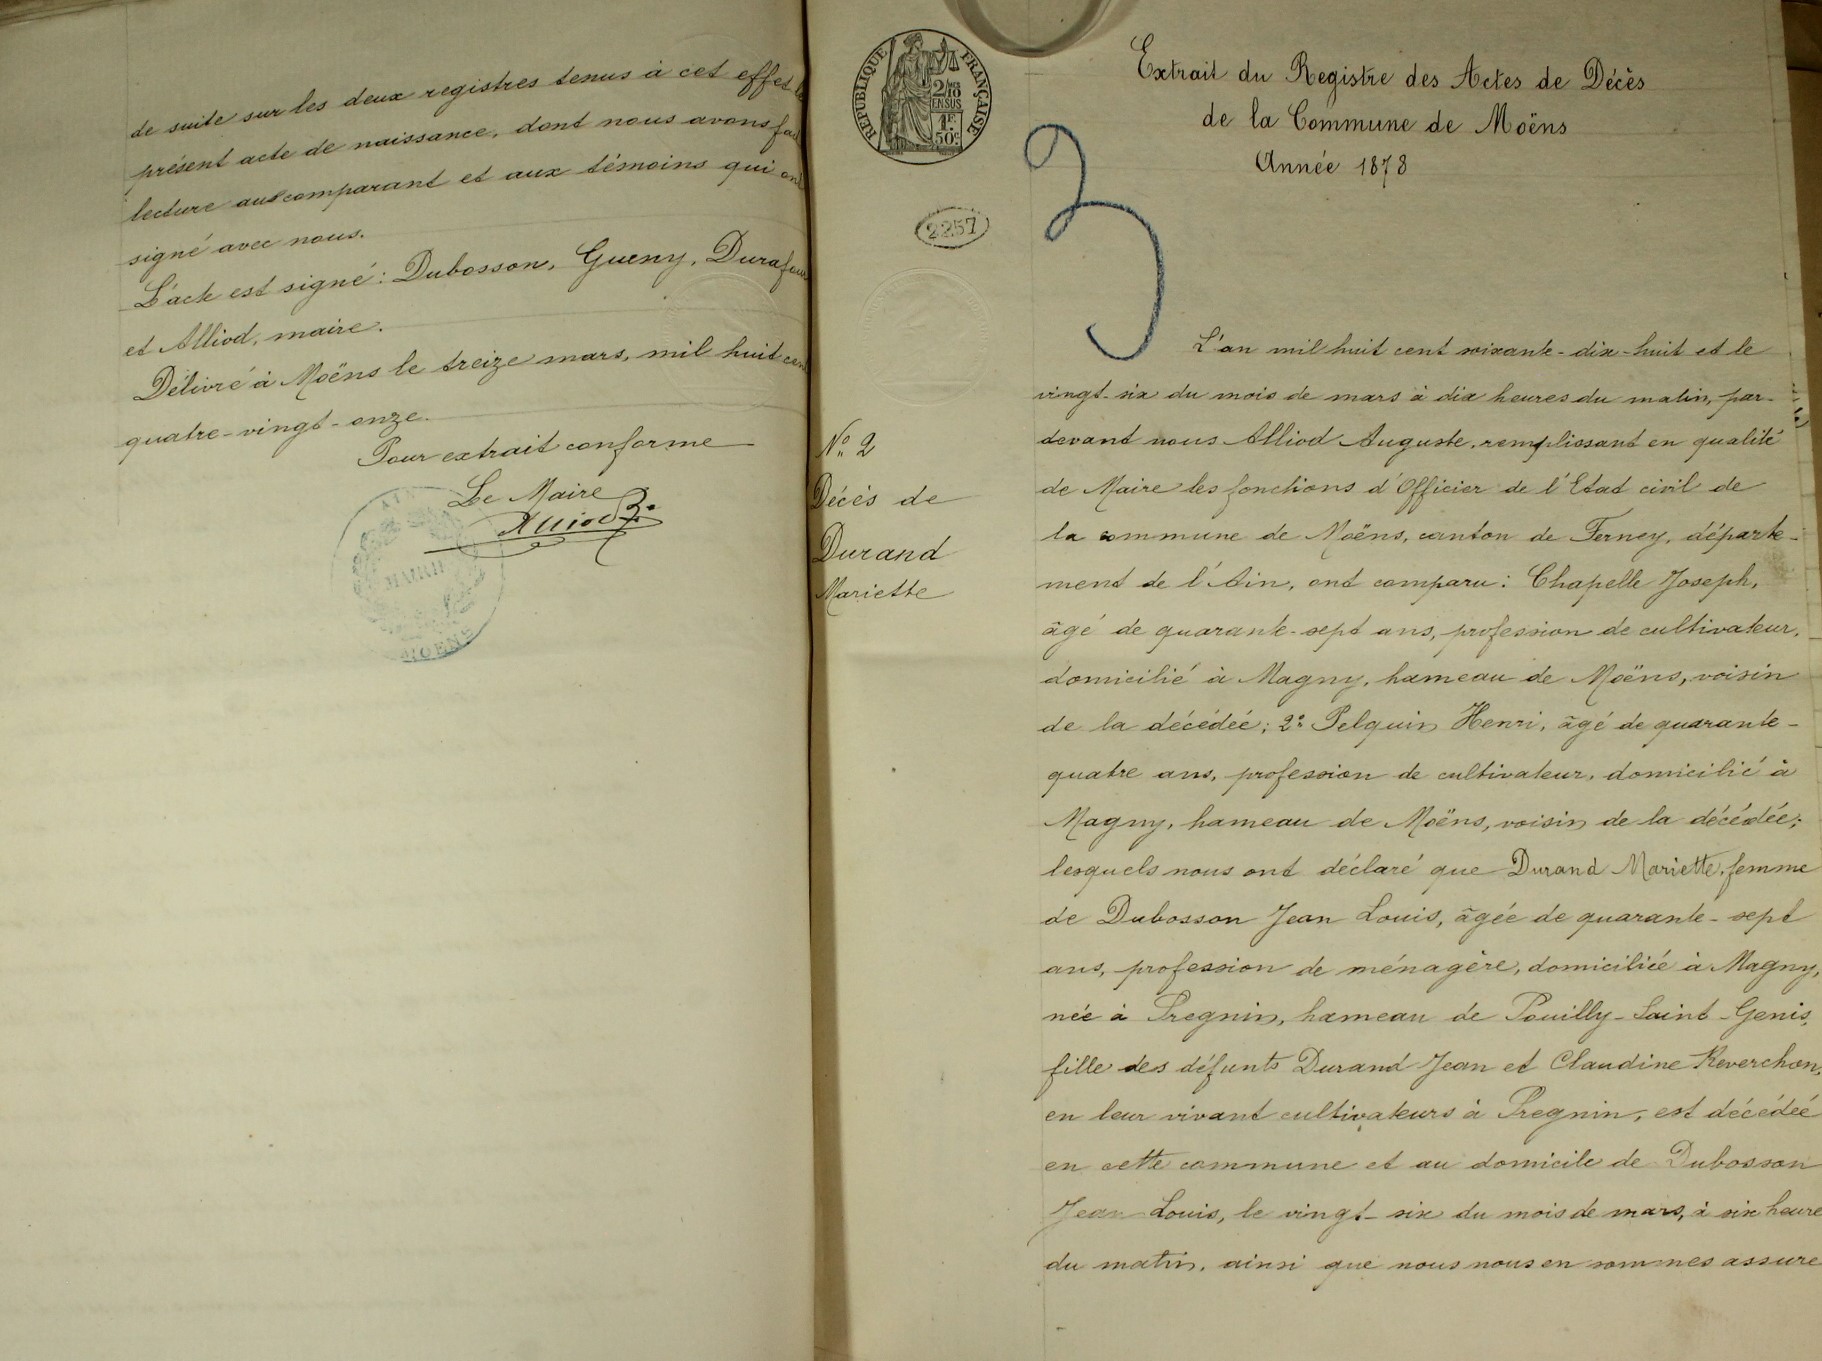 de suite sur les deux registres tenus à cet effet le
présent acte de naissance, dont nous avons fait
lecture aux comparant et aux témoins qui ont
signé avec nous.
L'acte est signé : Dubosson, Gueny, Durafour
et Alliod, maire.
Délivré à Moëns le treize mars, mil huit cent
quatre-vingt-onze.
Pour extrait conforme
Le Maire
Alliod
AIN
MAIRIE
MOENS
RÉPUBLIQUE FRANÇAISE
2/10
EN SUS
1F
50c
2257
3
Extrait du Registre des Actes de Décès
de la Commune de Moëns
Année 1878
No 2
Décès de
Durand
Mariette
L'an mil huit cent soixante-dix-huit et le
vingt-six du mois de mars à dix heures du matin, par-
devant nous Alliod Auguste, remplissant en qualité
de Maire les fonctions d'Officier de l'Etat civil de
la commune de Moëns, canton de Ferney, départe-
ment de l'Ain, ont comparu : Chapelle Joseph,
âgé de quarante-sept ans, profession de cultivateur,
domicilié à Magny, hameau de Moëns, voisin
de la décédée; 2º Pelquin Henri, âgé de quarante-
quatre ans, profession de cultivateur, domicilié à
Magny, hameau de Moëns, voisin de la décédée;
lesquels nous ont déclaré que Durand Mariette, femme
de Dubosson Jean Louis, âgée de quarante-sept
ans, profession de ménagère, domiciliée à Magny,
née à Pregnin, hameau de Pouilly-Saint-Genis,
fille des défunts Durand Jean et Claudine Reverchon,
en leur vivant cultivateurs à Pregnin, est décédée
en cette commune et au domicile de Dubosson
Jean Louis, le vingt-six du mois de mars, à six heure
du matin, ainsi que nous nous en sommes assure